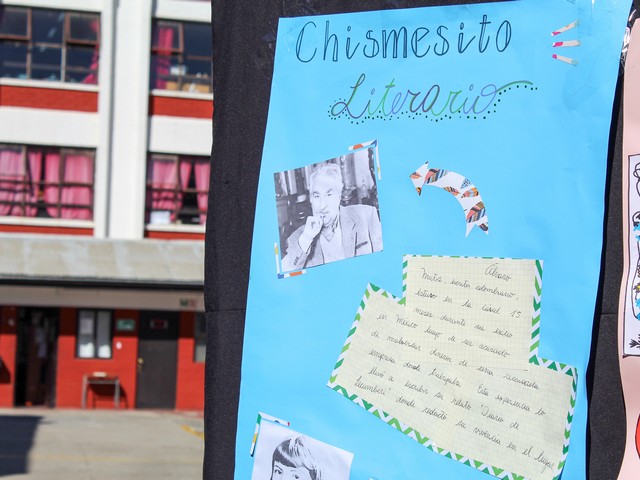 Chismesito
Literario
Álvaro
Mutis, escritor colombiano,
estuvo en la cárcel 15
meses durante su exilio
en México luego de ser acusado
de malversar dinero de una
empresa donde trabajaba. Esta experiencia lo
llevó a escribir su relato "Diario de
Lecumberri" donde redacta su vivencia en el lugar